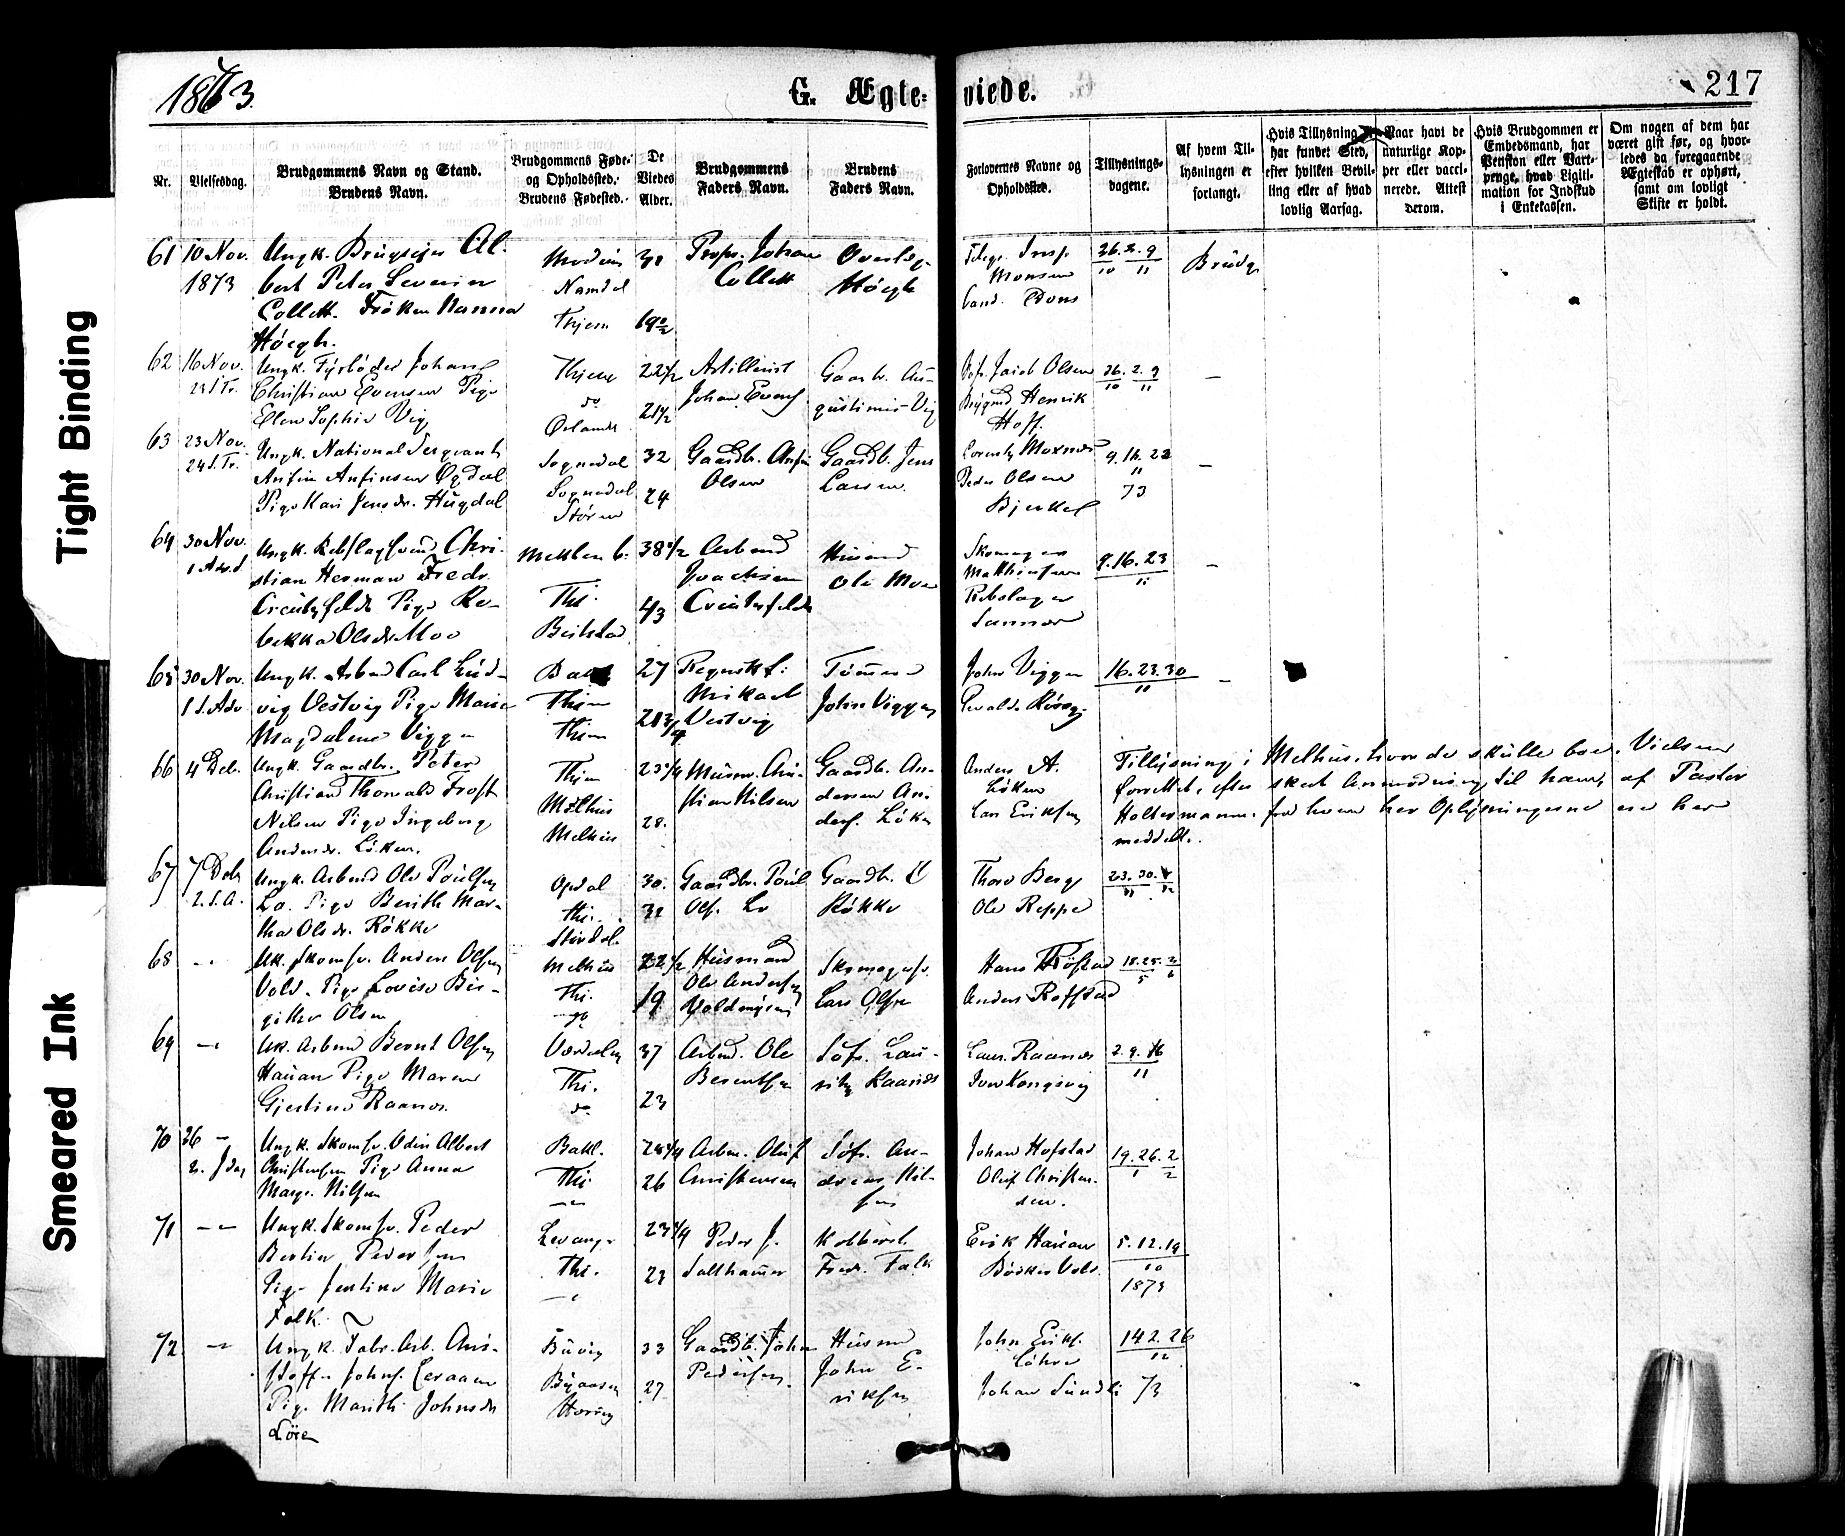 1873.
G. Ægte=
viede.
217
Nr.
Vielsesdag.
Brudgommens Navn og Stand.
Brudens Navn.
Brudgommens Føde-
og Opholdssted.
Brudens Fødested.
De
Viedes
Alder.
Brudgommens
Faders Navn.
Brudens
Faders Navn.
Forlovernes Navne og
Opholdssted.
Tillysnings-
dagene.
Af hvem Til-
lysningen er
forlangt.
Hvis Tillysning
har fundet Sted,
efter hvilken Bevil-
ling eller af hvad
lovlig Aarsag.
Naar havt de
naturlige Kop-
per eller vacci-
nerede. Attest
derom.
Hvis Brudgommen er
Embedsmand, har
Pension eller Vart-
penge, hvad Ligiti-
mation for Indskud
i Enkekassen.
Om nogen af dem har
været gift før, og hvor-
ledes da foregaaende
Ægteskab er ophørt,
samt om lovligt
Skifte er holdt.
61 10 Nov. 1873
Ungk. Brugseier Al-
bert Peter Severin
Collett. Frøken Nanna
Høegh.
Namdal
Thjem
31
Prop. Johan
Collett
Høegh
Monsen
Cand. Dons
26. 2. 9
10 11
Brudg
62 16 Nov.
23 S. Tr.
Ungk. Fyrbøder Johan
Christian Evensen Pige
Ellen Sophie Vig
Thjem
do
Ørlandt
22 1/2
21 1/2
Artillerist
Johan Evens
Gaardb. Au-
gustinus Vig
Jacob Olsen
Henrik
Hoff.
26. 2. 9
10 11
63 23 Nov.
24 S. Tr.
Ungk. National Sergeant
Anfin Anfinsen Øgdal
Pige Kari Jensdr. Hugdal
Sognedal
Sognedal
Støren
32
24
Gaardb. Anfin
Olsen
Gaardb. Jens
Larsen.
Lorents Moxnes
Peder Olsen
Bjerkel
9. 16. 23
11
73
64 30 Nov.
1 Adv.
Ungk. Rebslagsvend Chri-
stian Herman Fredr.
Pige Re-
bekka Olsdr. Moe
Meklenb.
Thj.
Beitstad
38 1/2
43
Arbmd
Joachim
Husmd
Ole Moe
Skomager
Mathisen
Rebslager
Sannes
9. 16. 23
11
65 30 Nov.
1 S. Adv
Ungk. Arbmd Carl Lud-
vig Vestvig Pige Maria
Magdalena Viggen
Bakl
Thjem
Thjem
27
21 3/4
Mikael
Vestvig
Tømmerm
John Viggen
John Viggen
16. 23. 30
11
66 4 Deb.
Ungk. Gaardbr. Peter
Christian Thorvald Frost
Nilsen Pige Ingeborg
Andersdr. Løken.
Thjem
Melhus
Melhus
25 1/4
28.
Murm. Chri-
stian Nilsen
Gaardb. An-
dersen An-
ders. Løken
Anders A.
Løken
Lars Eriksen
Tillysning i Melhus, hvor de skulle boe. Vielsen
forrettet, efter skeet Anmodning til ham, af Pastor
Holtermann. fra hvem her Oplysningerne ere her
meddelte.
67 7 Debr
2. S. A.
Ungk. Arbmd Ole Poulsen
Lo. Pige Berith Mar-
tha Olsdr. Røkke
Opdal
Thj.
Størdal
30.
31
Gaardbr. Poul
Ols. Lo
Gaardb. O
Røkke
Thore Berg
Ole Reppe
23. 30. 7
11 12
68
Uk. Skomsv. Anders Olsen
Vold. Pige Lovise Bir-
gitte Olsen
Melhus
Thj.
do
22 1/2
19
Husmand
Ole Andersen
Skomagersv.
Lars Olsen
Hans Røfstad
Anders Roffstad
18. 25. 2
5 6
69
Uk. Arbmd Bernt Olsen
Hauan Pige Maren
Gjertine Raanes.
Værdalen
Thj.
do
37
23
Arbmd. Ole
Berentsen
Søfr. Lau-
ritz Raanes
Laur. Raanes
Iver Kongsvig
2. 9. 16
11
70 26
Ungk. Skomsv. Odin Albert
Christensen Pige Anna
Margr. Nilsen
Bakl.
Thj.
28 1/4
26
Arbm. Oluf
Christensen
Søfr. An-
dreas Nil-
sen
Johan Hofstad
Oluf Christen-
sen.
19. 26. 2
1 2
71
Ungk. Skomsv. Peder
Bertin Pedersen
Pige Jentine Marie
Falk.
Levanger
Thj.
23 1/4
23
Peder J.
Salthammer
Fredr. Falk
Erik Hauan
Bødker Vold.
5. 12. 19
10
1873
72
Ungk. Fabr. Arb. Chri-
stoffer Johns. Leraaen
Pige Marith Johnsdr
Løre
Buvig
Byaasen
33
27
Gaardb. John
Pedersen.
Husmd
John E-
riksen
John Eriks.
Løhre
Johan Sundli
14 2. 26
12
73
Tight Binding
Smeared Ink